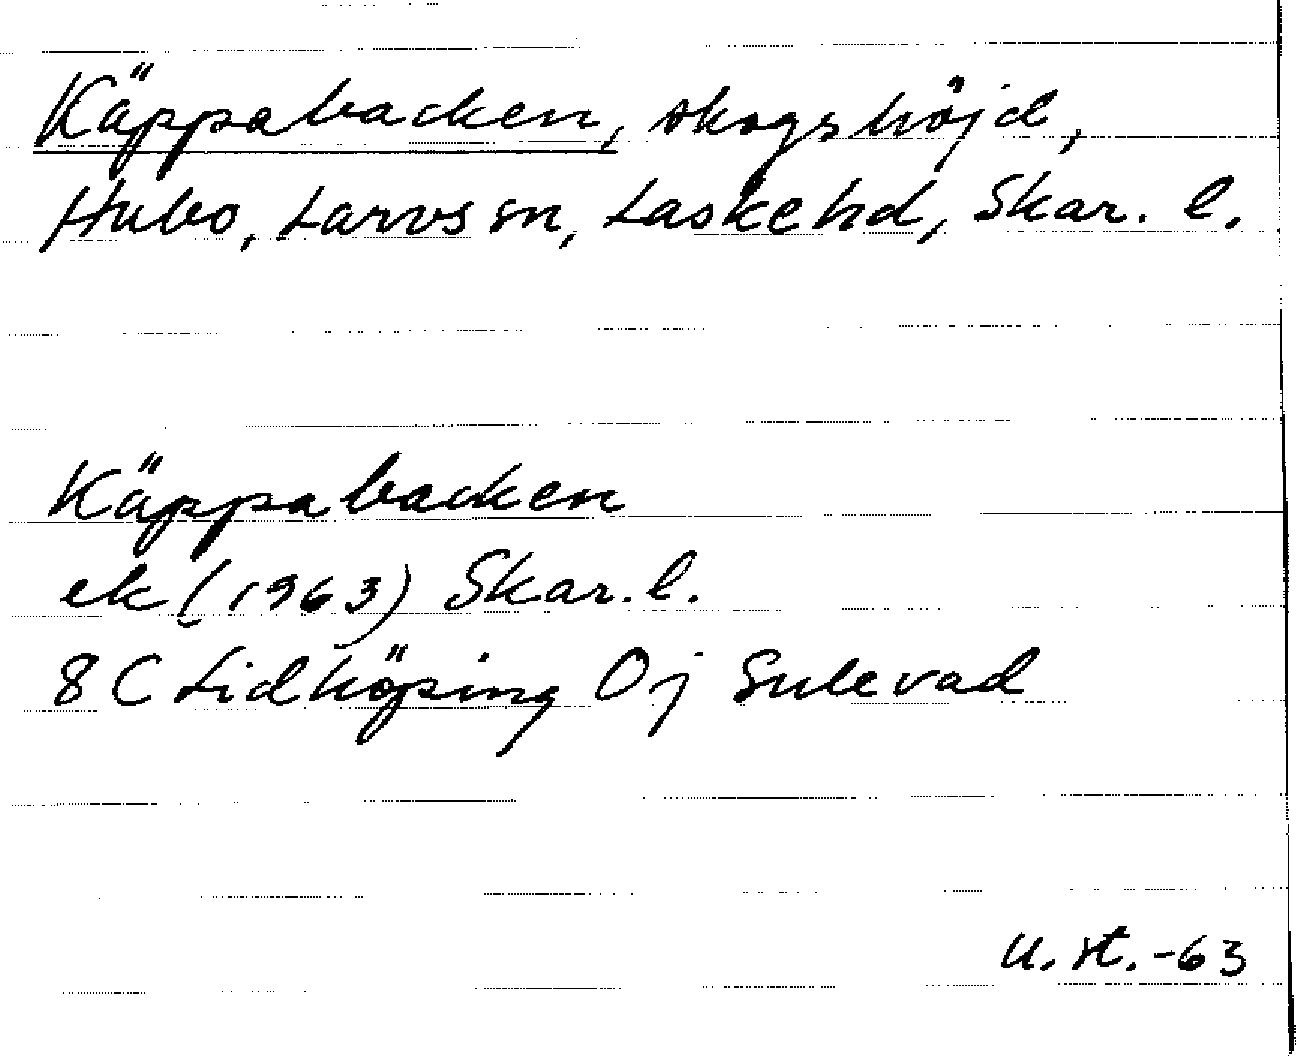 Käppabacken, skogshöjd,
Hubo, Larvs sn, Laske hd, Skar. l.
Käppabacken
ek (1963) Skar. l.
8 C Lidköping Oj Sulevad
u. st. -63